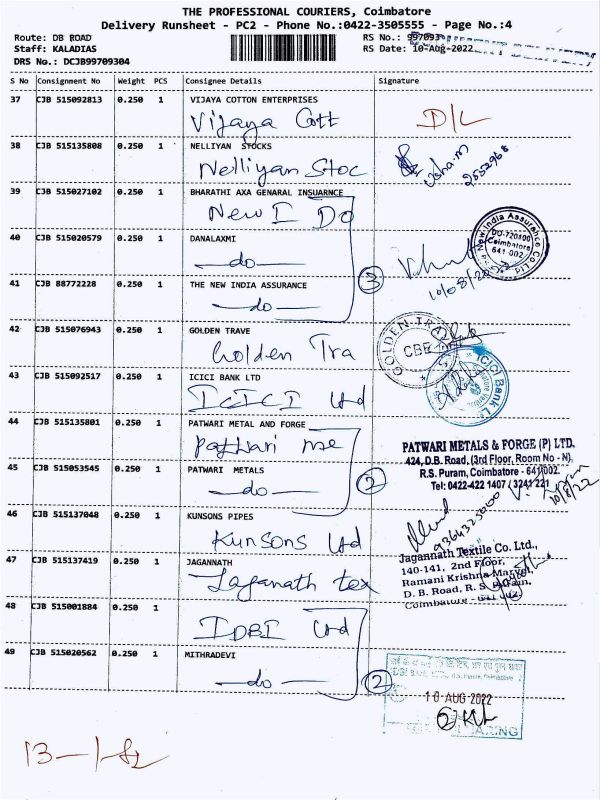 THE PROFESSIONAL COURIERS, Coimbatore
Delivery Runsheet - PC2 - Phone No.:0422-3505555 - Page No.:4
Route: DB ROAD
RS No.: 997093
Staff: KALADIAS
RS Date: 10-Aug-2022
DRS No.: DCJB99709304
S No Consignment No Weight PCS Consignee Details Signature
37 CJB 515092813 0.250 1 VIJAYA COTTON ENTERPRISES
Vijaya Cott D/L
38 CJB 515135808 0.250 1 NELLIYAN STOCKS
Nelliyan Stoc Usha.M
39 CJB 515027102 0.250 1 BHARATHI AXA GENARAL INSUARNCE
New I Do
40 CJB 515020579 0.250 1 DANALAXMI
do
New India Assurance Co
DO-720100
Coimbatore
641 002
3
10/08/2022
41 CJB 88772228 0.250 1 THE NEW INDIA ASSURANCE
do
42 CJB 515076943 0.250 1 GOLDEN TRAVE
Golden Tra
GOLDEN TRA
CBE
43 CJB 515092517 0.250 1 ICICI BANK LTD
ICICI Ltd
ICICI Bank L
44 CJB 515135801 0.250 1 PATWARI METAL AND FORGE
Patwari me
PATWARI METALS & FORGE (P) LTD.
424, D.B. Road, (3rd Floor, Room No - N),
R.S. Puram, Coimbatore - 641 002.
Tel: 0422-422 1407 / 3241 221
45 CJB 515053545 0.250 1 PATWARI METALS
do
2
10/8/22
46 CJB 515137048 0.250 1 KUNSONS PIPES
Kunsons Ltd
47 CJB 515137419 0.250 1 JAGANNATH
Jaganath tex
Jagannath Textile Co. Ltd.,
140-141, 2nd Floor,
Ramani Krishna
D. B. Road, R. S.
Coimbatore - 641 002
48 CJB 515001884 0.250 1
IDBI Ltd
49 CJB 515020562 0.250 1 MITHRADEVI
do
2
10 AUG 2022
13-1-82